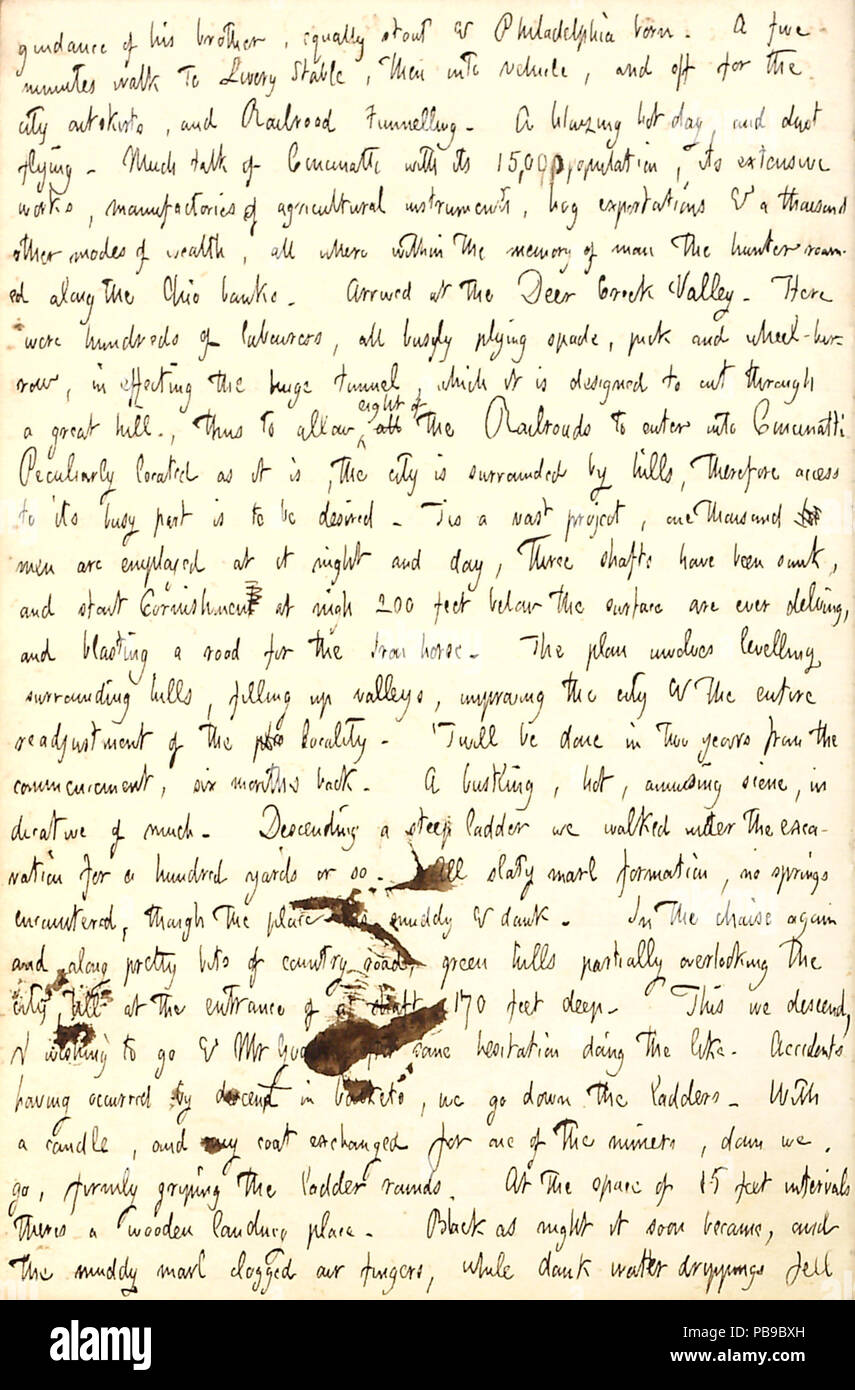 guidance of his brother, equally stout & Philadelphia born. A five
minutes walk to Livery Stable, then into vehicle, and off for the
city outskirts, and Railroad Tunnelling. A blazing hot day, and dust
flying. Much talk of Cincinatti with its 15,000 population, its extensive
works, manufactories of agricultural instruments, hog exportations & a thousand
other modes of wealth, all where within the memory of man the hunter roam-
ed along the Ohio banks. Arrived at the Deer Creek Valley. Here
were hundreds of labourers, all busyly plying spade, pick and wheel-bar-
row, in effecting the huge tunnel, which it is designed to cut through
a great hill., thus to allow eight of all the Railroads to enter into Cincinatti
Peculiarly located as it is, the city is surrounded by hills, therefore access
to its busy part is to be desired. Tis a vast project, one thousand
men are employed at it night and day, three shafts have been sunk,
and stout Cornishmen at nigh 200 feet below the surface are ever delving,
and blasting a road for the Iron horse. The plan involves levelling
surrounding hills, filling up valleys, improving the city & the entire
readjustment of the locality. 'Twill be done in two years from the
commencement, six months back. A bustling, hot, amusing scene, in
dicative of much. Descending a steep ladder we walked under the exca-
vation for a hundred yards or so. All slaty marl formation, no springs
encountered, though the place is muddy & dank. In the chaise again
and along pretty bits of country road, green hills partially overlooking the
city, till at the entrance of a shaft 170 feet deep. This we descend,
I wishing to go & Mr some hesitation doing the like. Accidents
having occurred by descent in baskets, we go down the ladders. With
a candle, and my coat exchanged for one of the miners, down we
go, firmly griping the ladder rounds. At the space of 15 feet intervals
theres a wooden landing place. Black as night it soon became, and
the muddy marl clogged our fingers, while dank water drippings fell
alamy
Image ID: PB9BXH
www.alamy.com